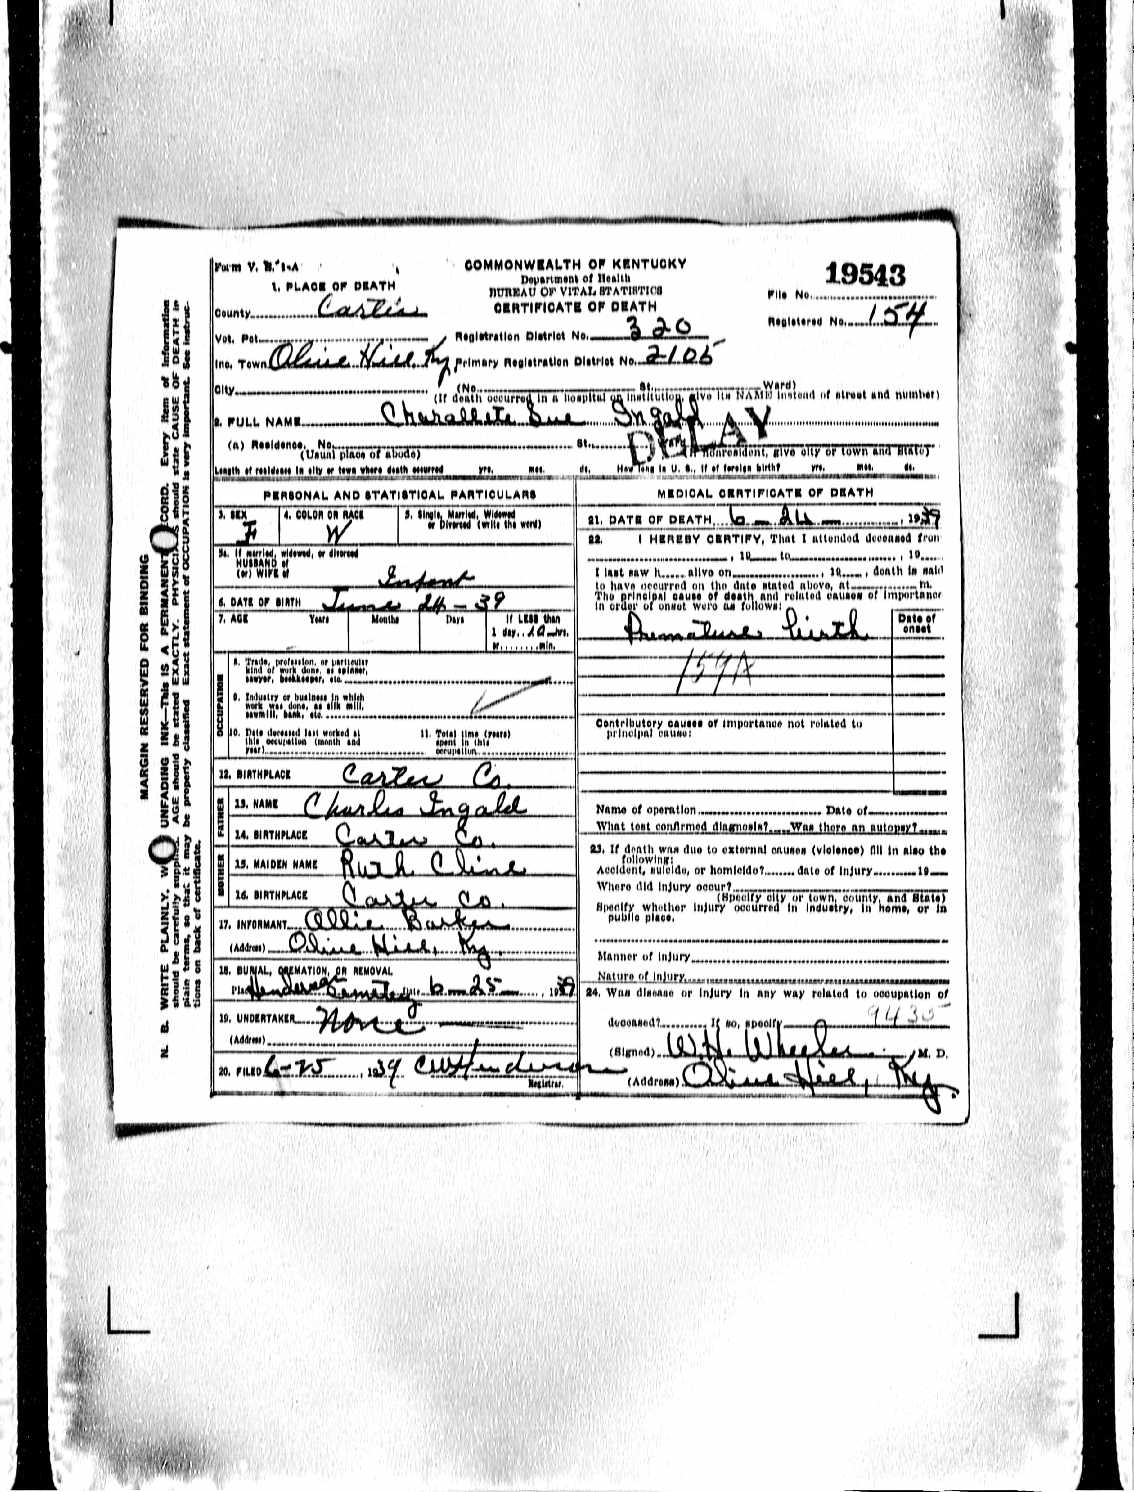 Form V. S. 1-A
COMMONWEALTH OF KENTUCKY
Department of Health
BUREAU OF VITAL STATISTICS
CERTIFICATE OF DEATH
19543
File No.
Registered No. 154
1. PLACE OF DEATH
County Carter
Vot. Pct.
Registration District No. 320
Inc. Town Olive Hill Ky
Primary Registration District No. 2105
City
(No. St. Ward)
(If death occurred in a hospital or institution, give its NAME instead of street and number)
2. FULL NAME Charallete Sue Ingald
DELAY
(a) Residence. No. St.
(Usual place of abode)
(If nonresident, give city or town and State)
Length of residence in city or town where death occurred yrs. mos. ds. How long in U. S., if of foreign birth? yrs. mos. ds.
PERSONAL AND STATISTICAL PARTICULARS
3. SEX F
4. COLOR OR RACE W
5. Single, Married, Widowed
or Divorced (write the word)
5a. If married, widowed, or divorced
HUSBAND of
(or) WIFE of
Infant
6. DATE OF BIRTH June 24-39
7. AGE Years Months Days If LESS than
1 day, 10 hrs.
or min.
OCCUPATION
8. Trade, profession, or particular
kind of work done, as spinner,
sawyer, bookkeeper, etc.
9. Industry or business in which
work was done, as silk mill,
sawmill, bank, etc.
10. Date deceased last worked at
this occupation (month and
year)
11. Total time (years)
spent in this
occupation
12. BIRTHPLACE Carter Co.
FATHER
13. NAME Charlis Ingald
14. BIRTHPLACE Carter Co.
MOTHER
15. MAIDEN NAME Ruth Cline
16. BIRTHPLACE Carter Co.
17. INFORMANT Allie Barker
(Address) Olive Hill, Ky.
18. BURIAL, CREMATION, OR REMOVAL
Place Cemetery Date 6-25-, 1939
19. UNDERTAKER None
(Address)
20. FILED 6-25, 1939 CW Henderson
Registrar.
MEDICAL CERTIFICATE OF DEATH
21. DATE OF DEATH 6-24-, 1939
22. I HEREBY CERTIFY, That I attended deceased from
, 19 to , 19
I last saw h alive on , 19 , death is said
to have occurred on the date stated above, at m.
The principal cause of death and related causes of importance
in order of onset were as follows:
Date of
onset
Premature birth
159A
Contributory causes of importance not related to
principal cause:
Name of operation Date of
What test confirmed diagnosis? Was there an autopsy?
23. If death was due to external causes (violence) fill in also the
following:
Accident, suicide, or homicide? date of injury 19
Where did injury occur?
(Specify city or town, county, and State)
Specify whether injury occurred in industry, in home, or in
public place.
Manner of injury
Nature of injury
24. Was disease or injury in any way related to occupation of
deceased? If so, specify
9435
(Signed) W.H. Wheeler, M. D.
(Address) Olive Hill, Ky.
MARGIN RESERVED FOR BINDING
N. B. WRITE PLAINLY, W UNFADING INK—THIS IS A PERMANENT CORD. Every item of information
should be carefully supplied. AGE should be stated EXACTLY. PHYSICIANS should state CAUSE OF DEATH in
plain terms, so that it may be properly classified. Exact statement of OCCUPATION is very important. See instruc-
tions on back of certificate.